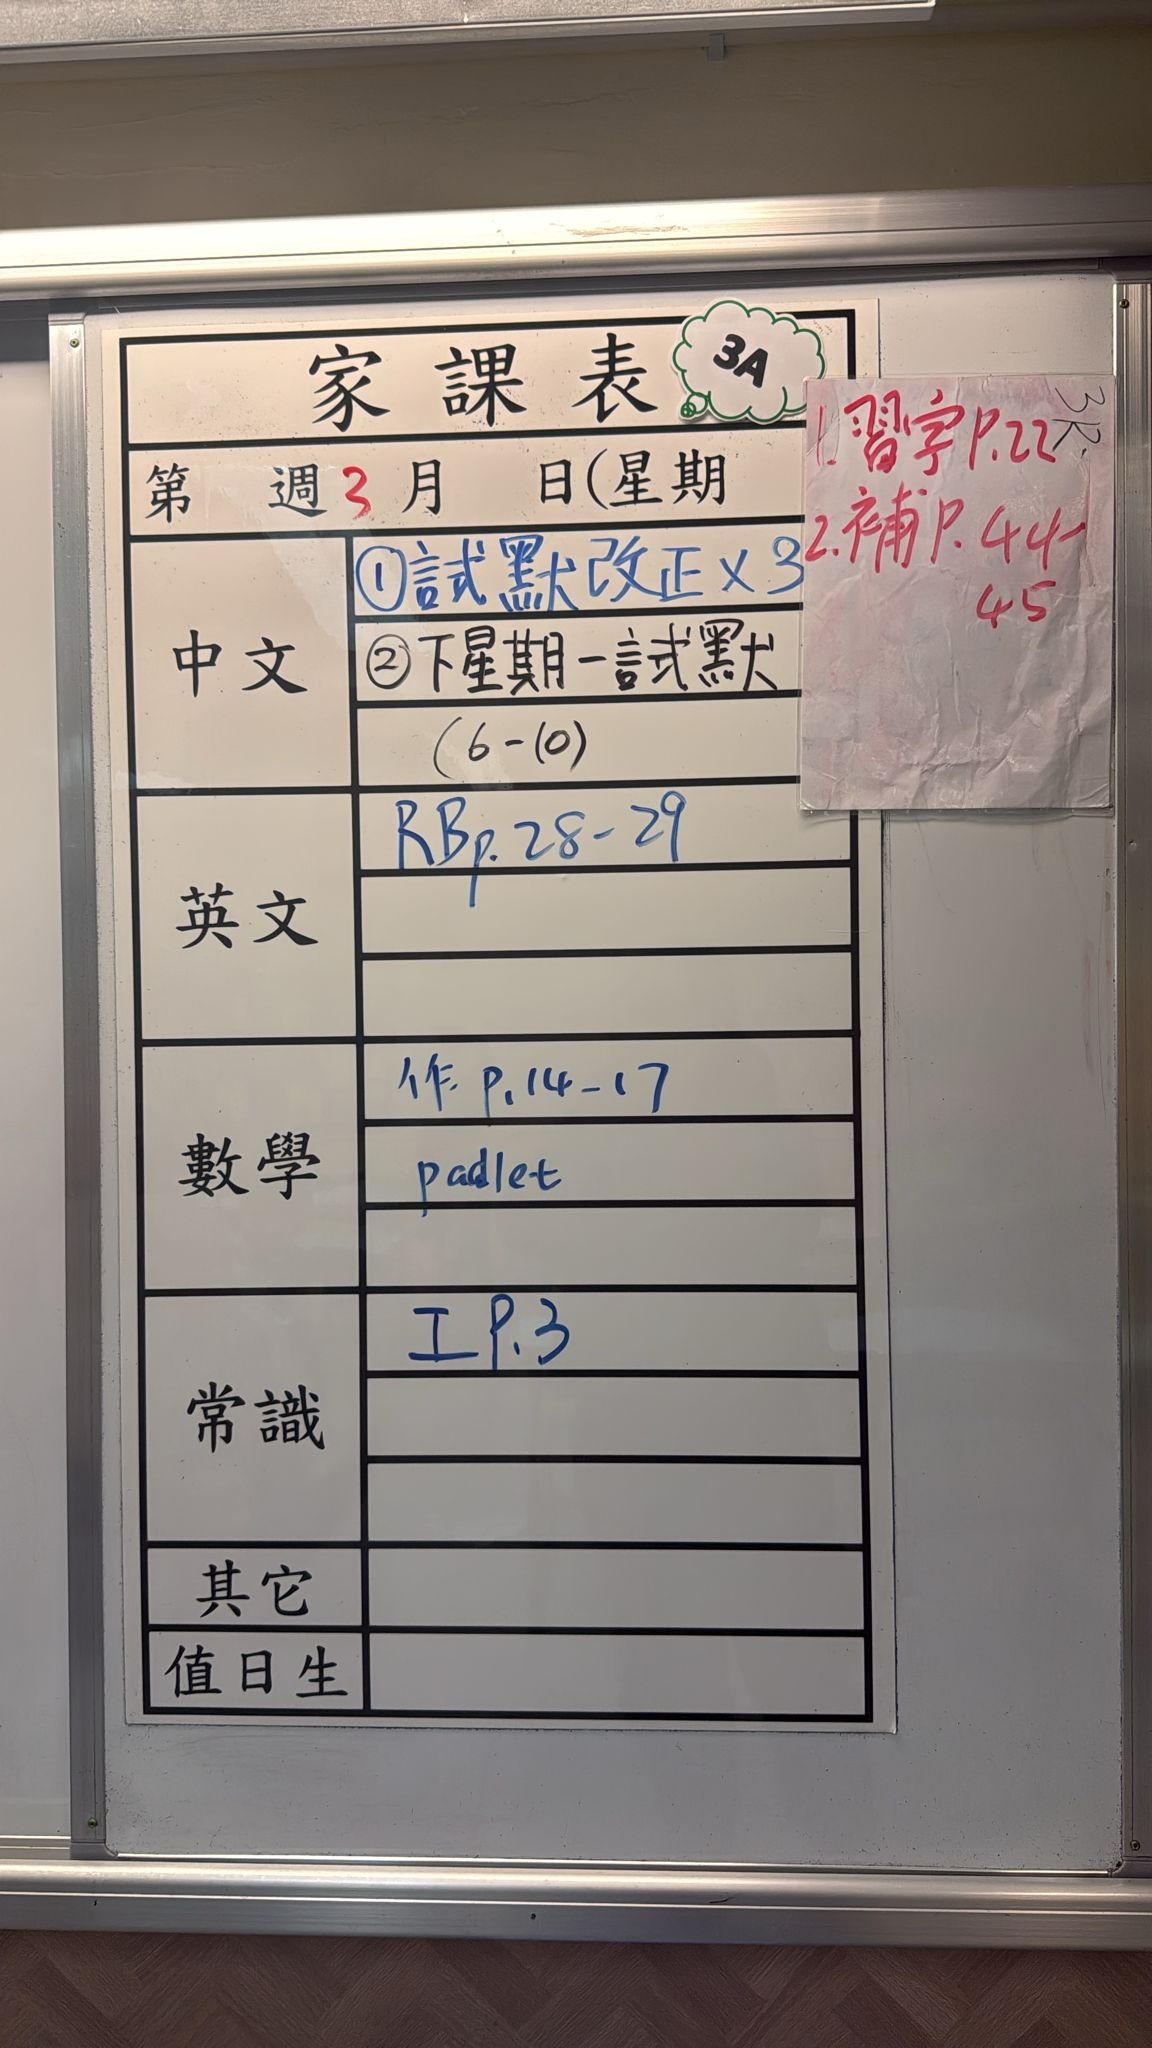 家課表
3A
第 週 3 月 日(星期
中文
①試默改正×3
②下星期一試默
(6-10)
英文
RB p.28-29
數學
作 p.14-17
padlet
常識
工 P.3
其它
值日生
3R
1.習字 P.22
2.補 P.44-
45